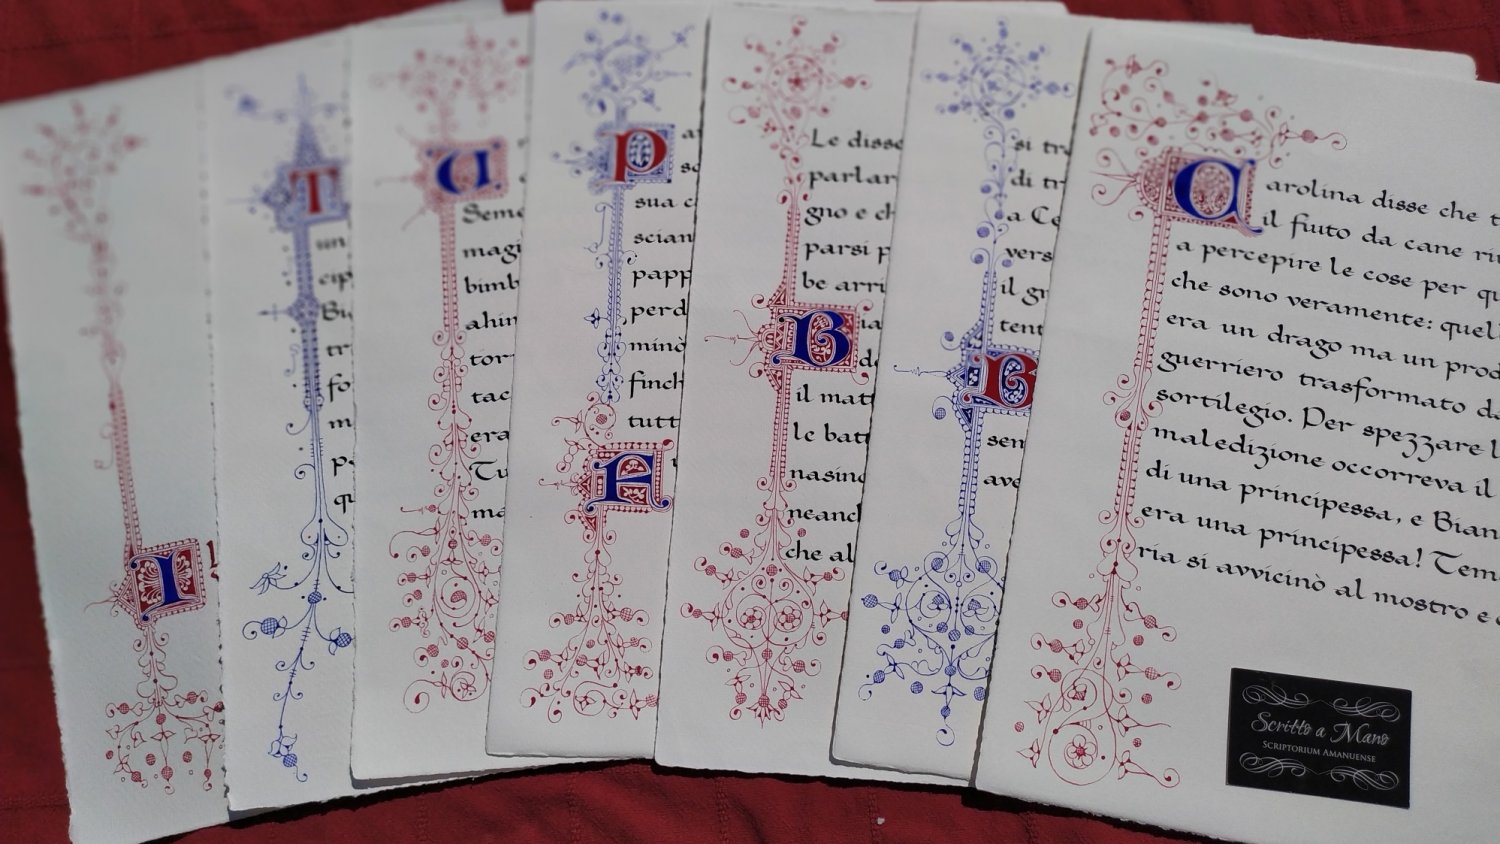 I
T
un
cip
tr
fo
m
qu
U
Seme
magi
bimb
ahin
tor
tac
era
Tu
ma
P
sua c
scian
papp
perd
minò
finch
tutt
F
Le disse
parlar
gno e ch
parsi p
be arri
B
il matt
le batt
nasino
neanch
che al
si tr
di tr
a Ce
vers
il gr
tent
B
sem
ave
Carolina disse che t
il fiuto da cane ri
a percepire le cose per qu
che sono veramente: quell
era un drago ma un prod
guerriero trasformato da
sortilegio. Per spezzare l
maledizione occorreva il
di una principessa, e Bian
era una principessa! Tem
ria si avvicinò al mostro e
Scritto a Mano
SCRIPTORIUM AMANUENSE